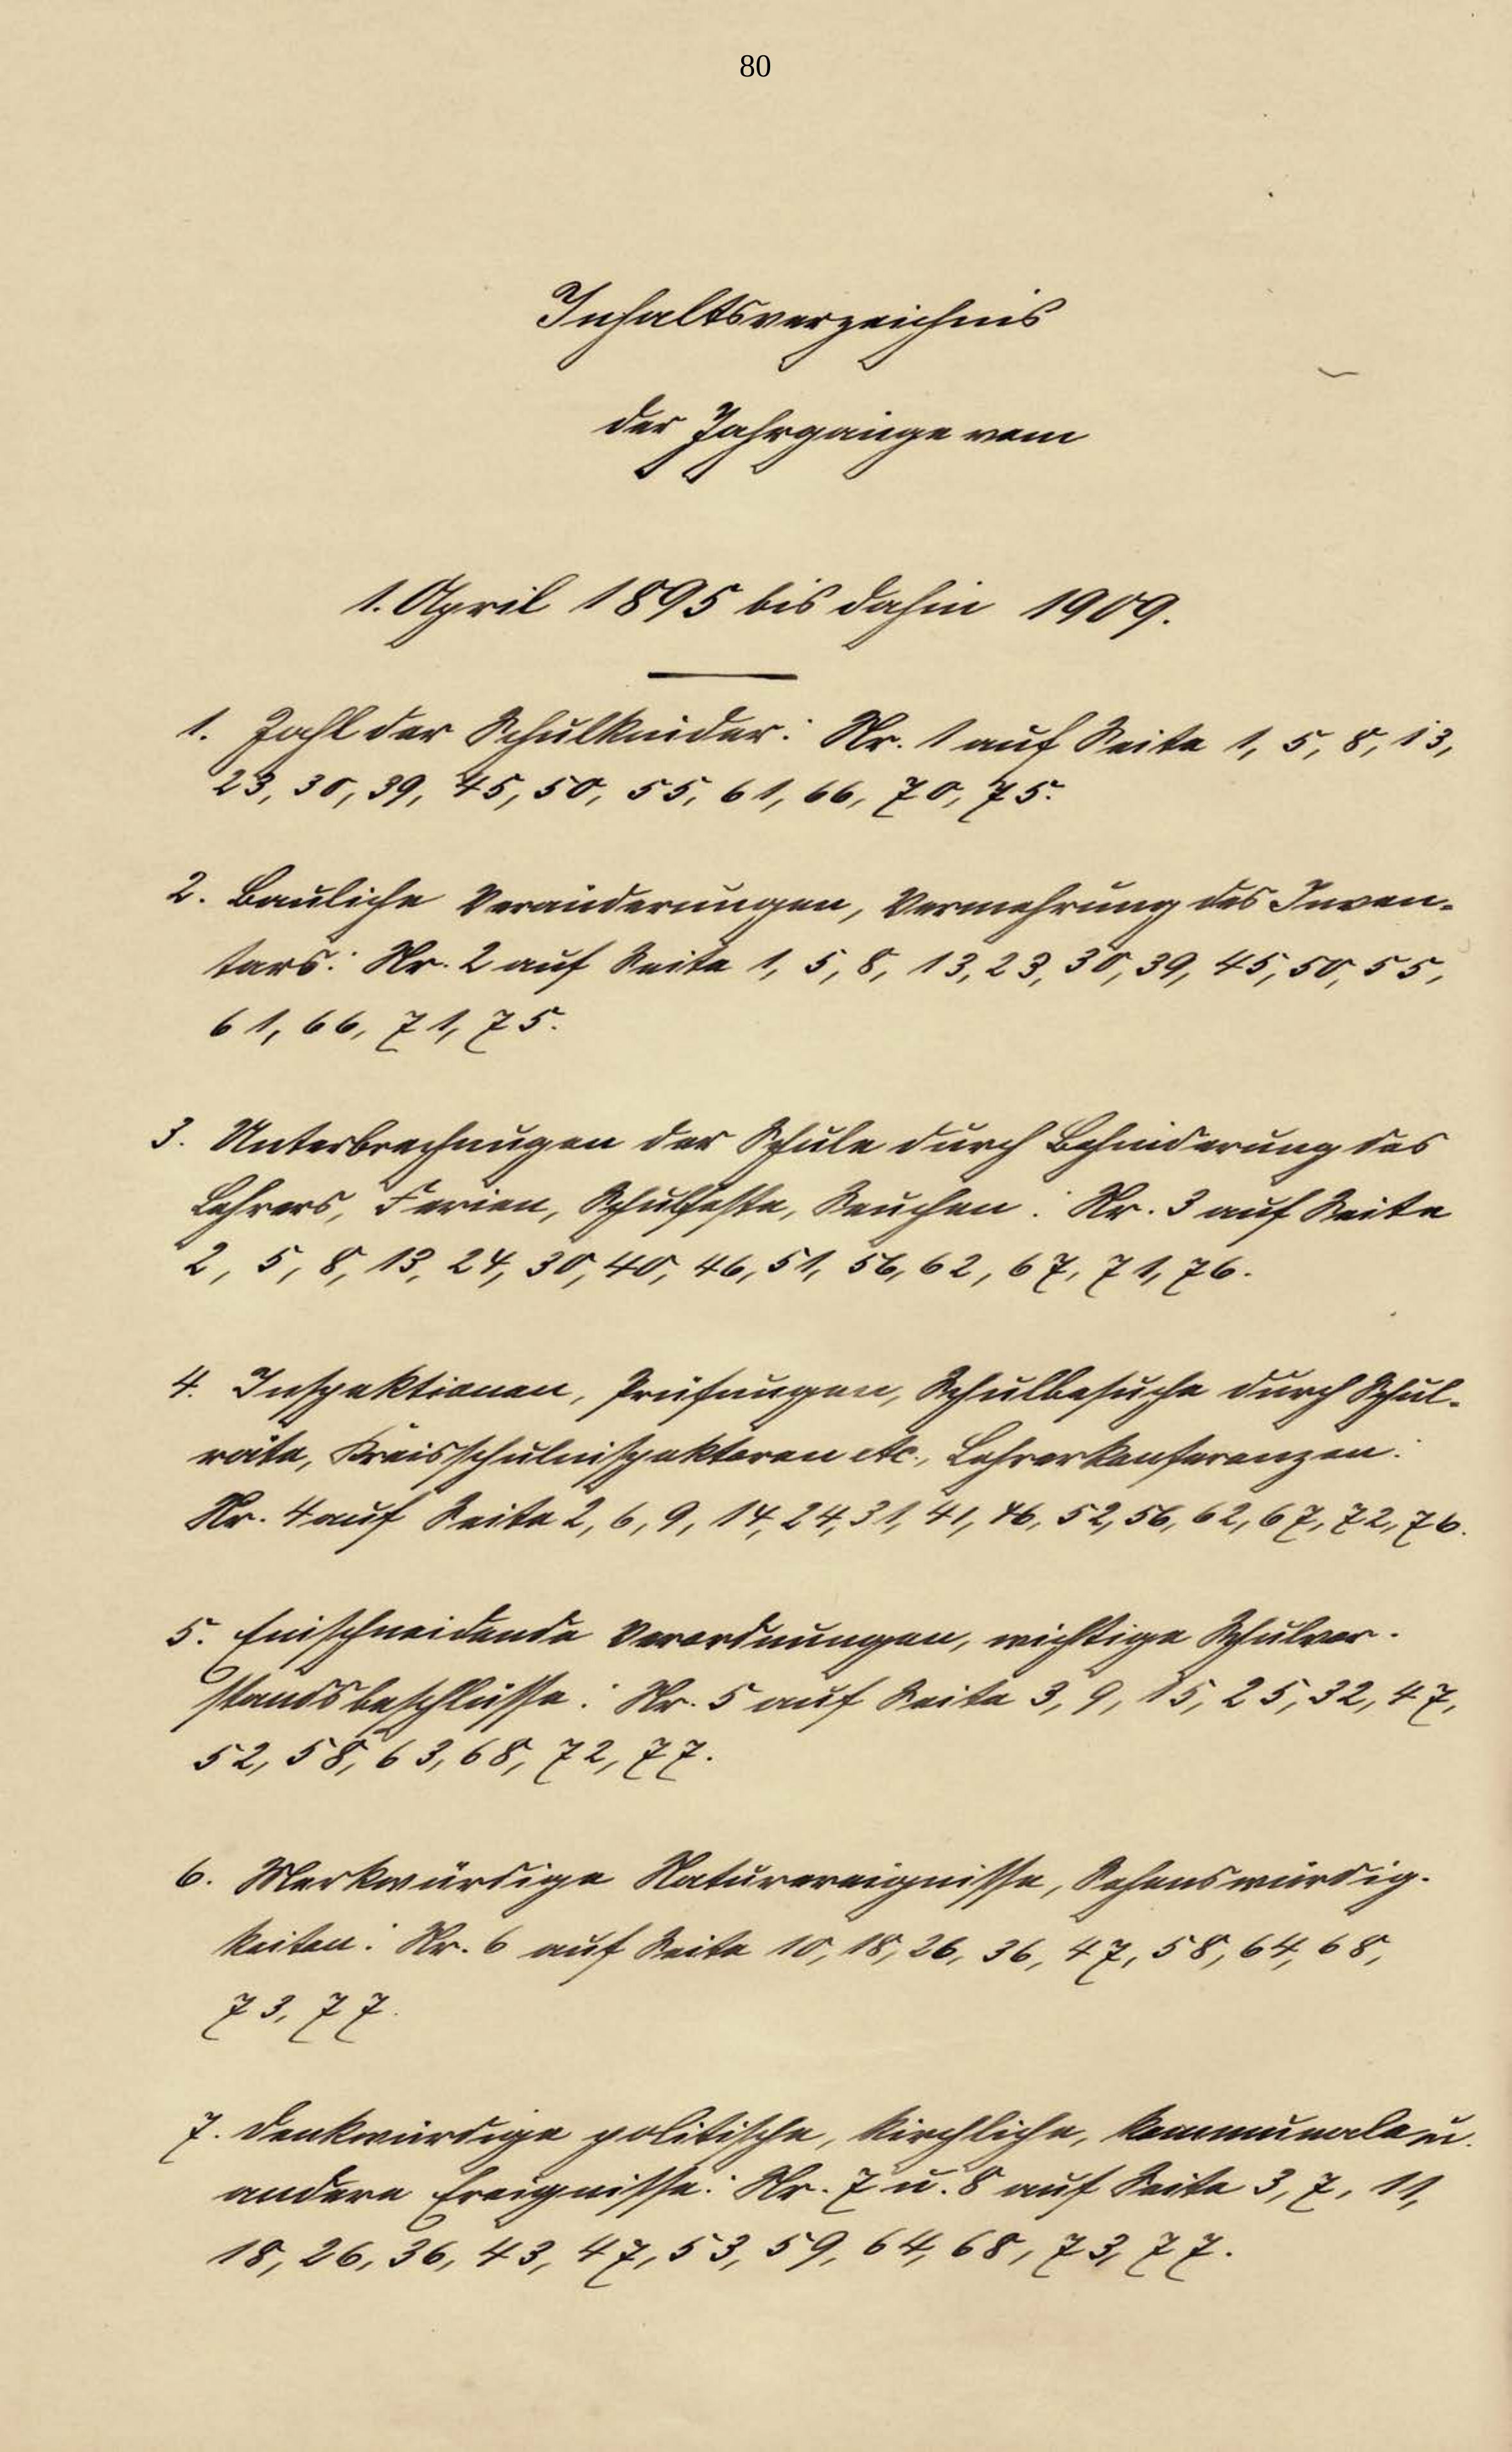 80
Inhaltsverzeichnis
der Jahrgänge vom
1. April 1895 bis dahin 1909.
1. Zahl der Schulkinder: Nr. 1 auf Seite 1, 5, 8, 13,
23, 30, 39, 45, 50, 55, 61, 66, 70, 75.
2. Bauliche Veränderungen, Vermehrung des Inven-
tars: Nr. 2 auf Seite 1, 5, 8, 13, 23, 30, 39, 45, 50, 55,
61, 66, 71, 75.
3. Unterbrechungen der Schule durch Behinderung des
Lehrers, Ferien, Schulfeste, Seuchen: Nr. 3 auf Seite
2, 5, 8, 13, 24, 30, 40, 46, 51, 56, 62, 67, 71, 76.
4. Inspektionen, Prüfungen, Schulbesuche durch Schul-
räte, Kreisschulinspektoren etc., Lehrerkonferenzen:
Nr. 4 auf Seite 2, 6, 9, 14, 24, 31, 41, 46, 52, 56, 62, 67, 72, 76.
5. Einschneidende Verordnungen, wichtige Schulvor-
standsbeschlüsse: Nr. 5 auf Seite 3, 9, 15, 25, 32, 47,
52, 58, 63, 68, 72, 77.
6. Merkwürdige Naturereignisse, Sehenswürdig-
keiten: Nr. 6 auf Seite 10, 18, 26, 36, 47, 58, 64, 68,
73, 77.
7. Denkwürdige politische, kirchliche, kommunale u.
andere Ereignisse: Nr. 7 u. 8 auf Seite 3, 7, 11,
18, 26, 36, 43, 47, 53, 59, 64, 68, 73, 77.